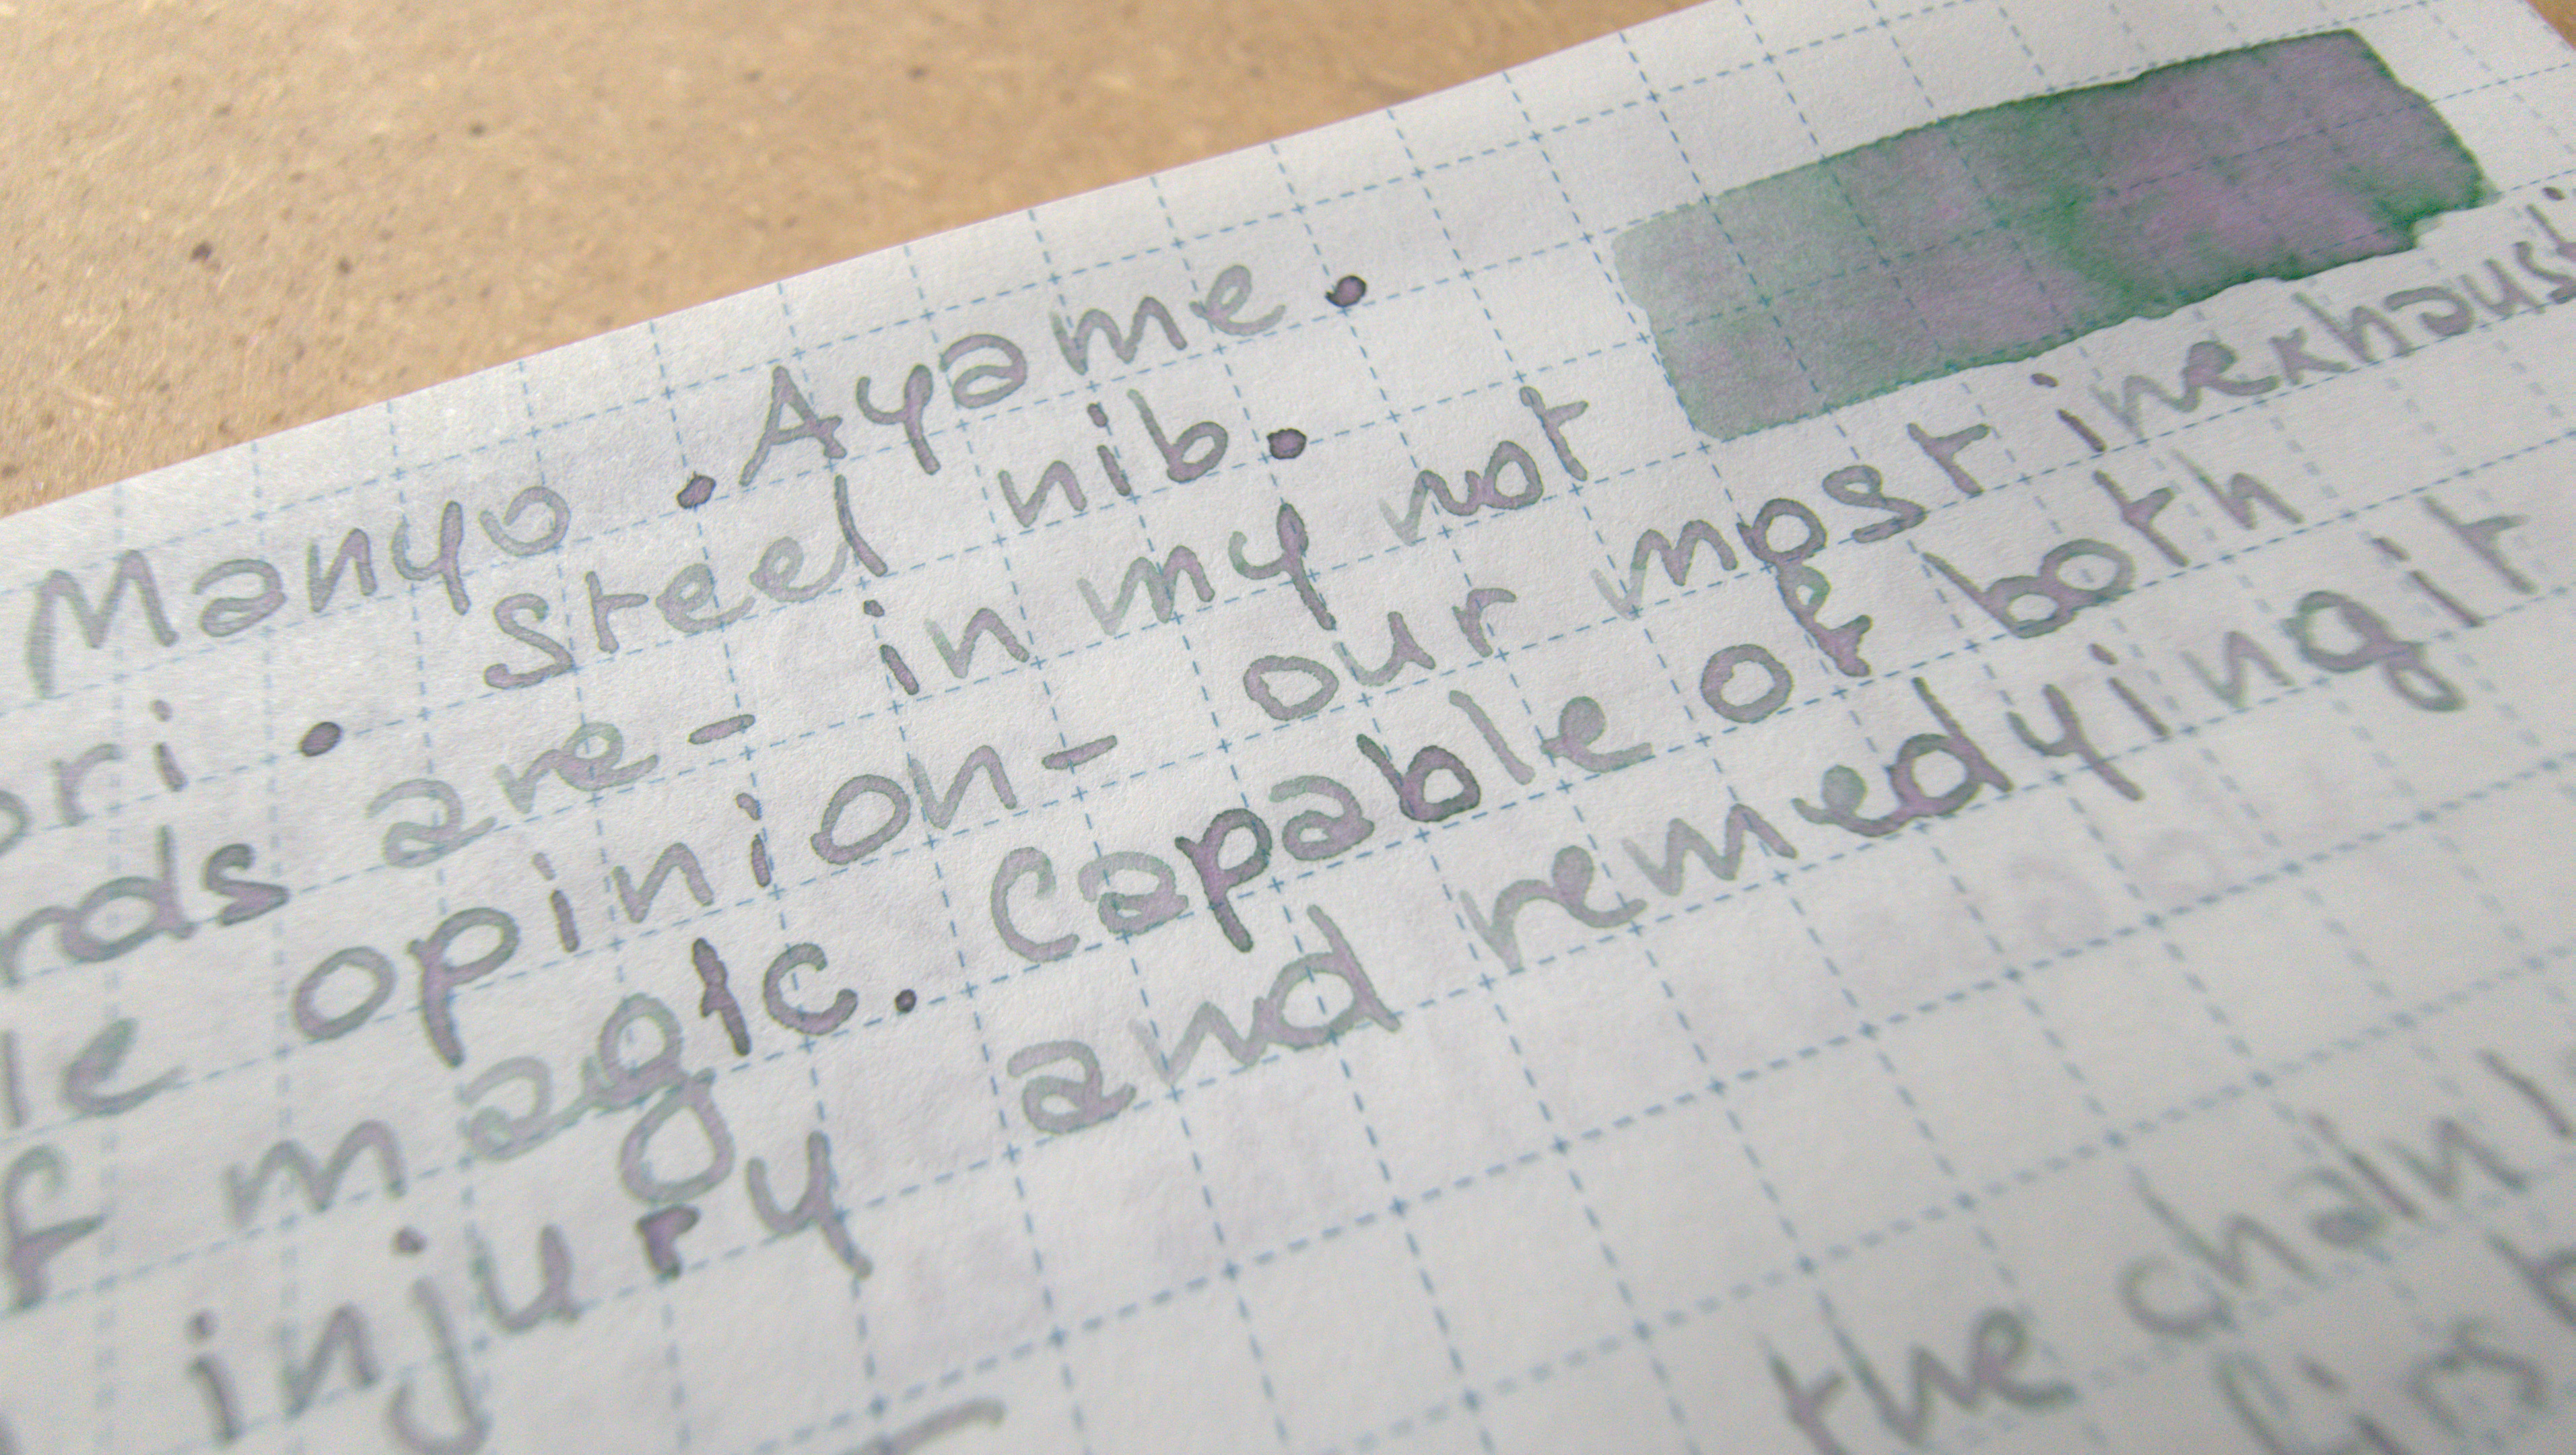 Manyo . Ayame .
ori . Steel nib .
rds are - in my not
le opinion - our most inexhausti
f magic. Capable of both
injury and remedying it
the chain